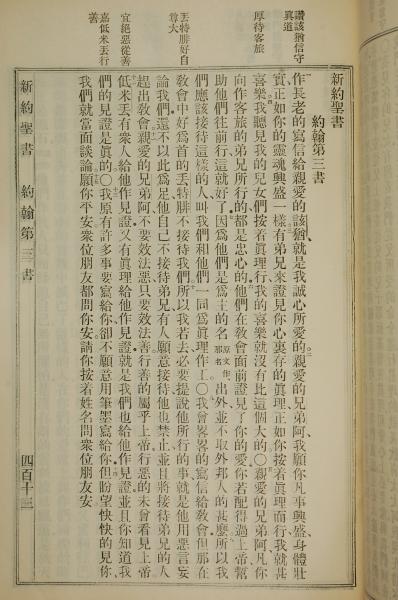 新約聖書
約翰第三書
作長老的寫信給親愛的該猶就是我誠心所愛的親愛的兄弟阿我願你凡事興盛身體壯
實正如你的靈魂興盛一樣有弟兄來證見你心裏存的眞理正如你按着眞理而行我就甚
喜樂我聽見我的兒女們按着眞理行我的喜樂就沒有比這個大的〇親愛的兄弟阿凡你
向作客旅的弟兄所行的都是忠心的他們在敎會面前證見了你的愛你若配得過上帝幫
助他們往前行這就好了因爲他們是爲主的名原文作那名出外並不取外邦人的甚麽所以我
們應該接待這樣的人叫我們和他們一同爲眞理作工〇我曾畧畧的寫信給敎會但那在
敎會中好爲首的丟特腓不接待我們所以我若去必要提說他所行的事就是他用惡言妄
論我們還不以此爲足他自己不接待弟兄有人願意接待他也禁止並且將接待弟兄的人
趕出敎會親愛的兄弟阿不要效法惡只要效法善行善的屬乎上帝行惡的未曾看見上帝
低米丟有衆人給他作見證又有眞理給他作見證就是我們也給他作見證並且你知道我
們的見證是眞的〇我原有許多事要寫給你卻不願意用筆墨寫給你但盼望快快的見你
我們就當面談論願你平安衆位朋友都問你安請你按着姓名問衆位朋友安
讚該猶信守
眞道
厚待客旅
丟特腓好自
尊大
宜絕惡從善
嘉低米丟行
善
新約聖書 約翰第三書 四百十三